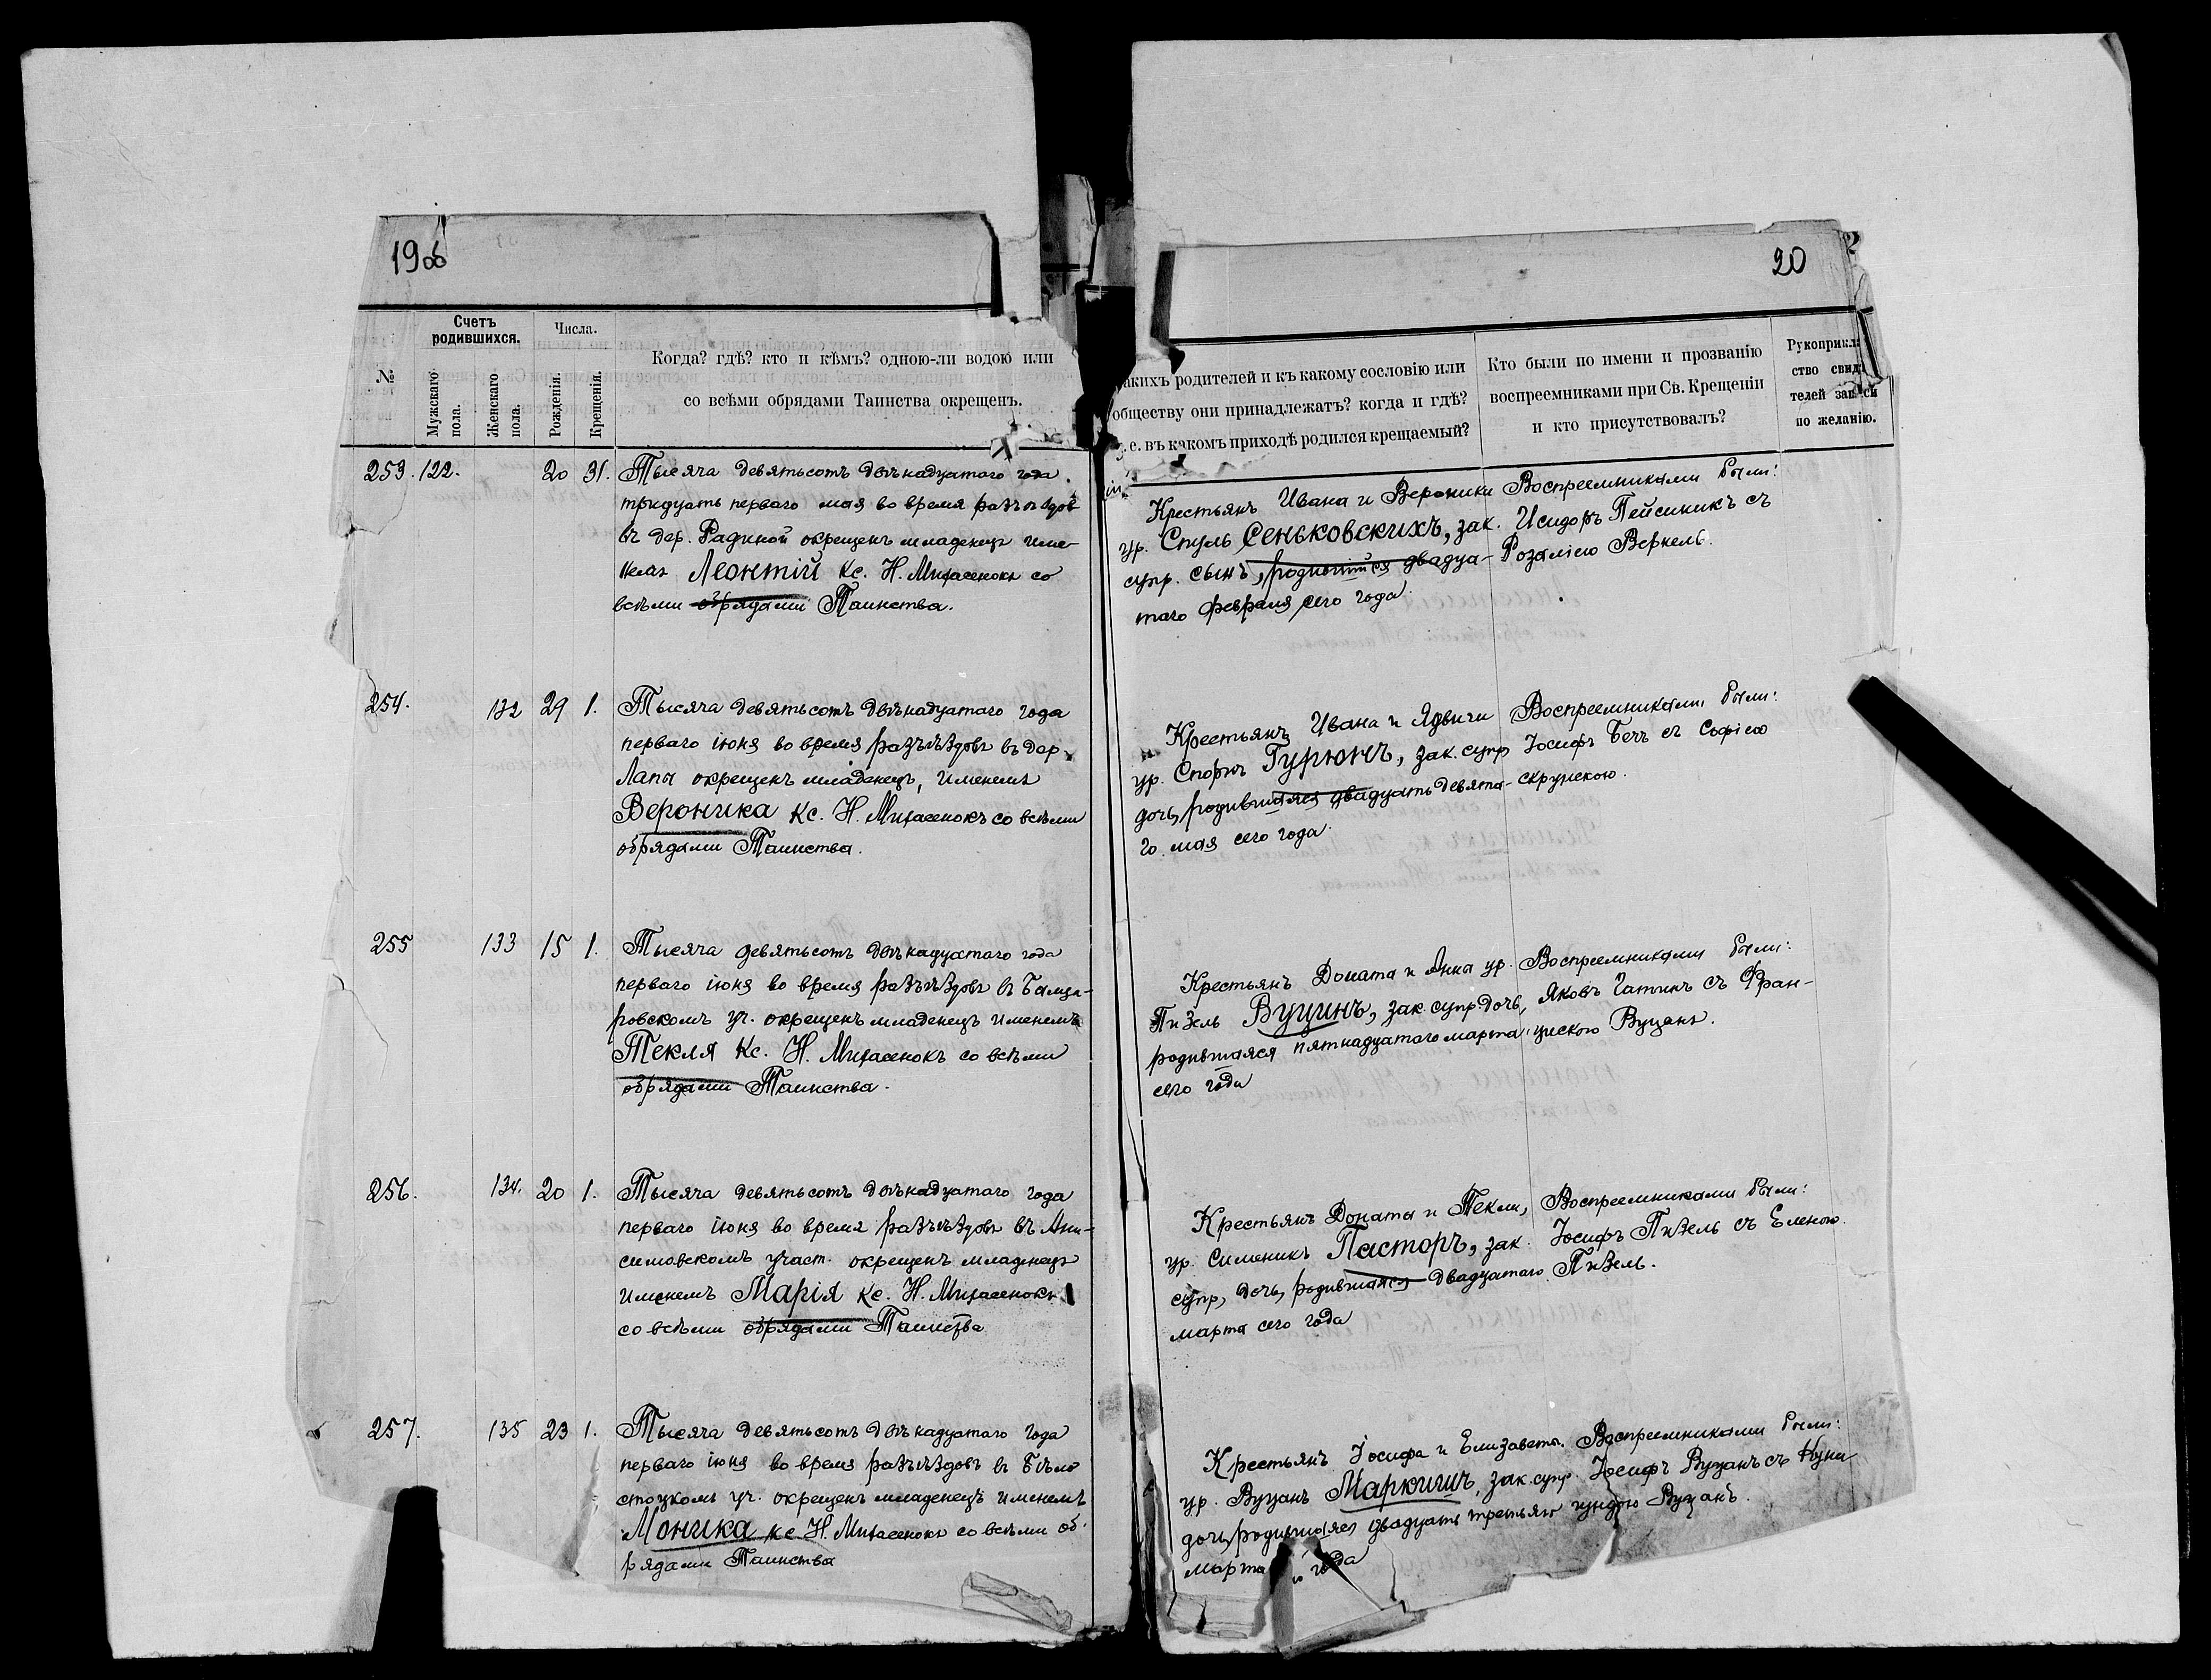 1906
Счетъ
родившихся.
Числа.
№
Мужскаго
пола.
Женскаго
пола.
Рожденія.
Крещенія.
Когда? гдѣ? кто и кѣмъ? одною-ли водою или
со всѣми обрядами Таинства окрещенъ.
253. 122. 20 31. Тысяча девятьсотъ двѣнадцатаго года
тридцать перваго мая во время разъѣздовъ
въ дер. окрещенъ младенецъ име-
немъ Леонтій Кс. Н. Михасенокъ со
всѣми обрядами Таинства.
254. 132 29 1. Тысяча девятьсотъ двѣнадцатаго года
перваго іюня во время разъѣздовъ въ дер.
Лапы окрещенъ младенецъ, именемъ
Вероника Кс. Н. Михасенокъ со всѣми
обрядами Таинства.
255 133 15 1. Тысяча девятьсотъ двѣнадцатаго года
перваго іюня во время разъѣздовъ въ
ровскомъ уч. окрещенъ младенецъ именемъ
Текля Кс. Н. Михасенокъ со всѣми
обрядами Таинства.
256. 134. 20 1. Тысяча девятьсотъ двѣнадцатаго года
перваго іюня во время разъѣздовъ въ Ани-
симовскомъ участ. окрещенъ младенецъ
именемъ Марія Кс. Н. Михасенокъ
со всѣми обрядами Таинства
257. 135 23 1. Тысяча девятьсотъ двѣнадцатаго года
перваго іюня во время разъѣздовъ въ Бѣло
стоцкомъ уч. окрещенъ младенецъ именемъ
Моника Кс Н. Михасенокъ со всѣми об-
рядами Таинства
20
какихъ родителей и къ какому сословію или
обществу они принадлежатъ? когда и гдѣ?
т. е. въ какомъ приходѣ родился крещаемый?
Кто были по имени и прозванію
воспреемниками при Св. Крещеніи
и кто присутствовалъ?
Рукоприкла
ство свидѣ
телей записи
по желанію.
Крестьянъ Ивана и Вероники
ур. Спуль Сеньковскихъ, зак.
супр. сынъ, родившійся двадца-
таго февраля сего года.
Воспреемниками были:
Исидоръ Пейсиникъ съ
Розаліею Веркель.
Крестьянъ Ивана и Ядвиги
ур. Гурюнъ, зак. супр
дочь, родившаяся двадцать девята-
го мая сего года.
Воспреемниками были:
Іосифъ Бечъ съ Софіею
Скрунскою.
Крестьянъ Доната и Анна ур.
Пизель Вуцинъ, зак. супр дочь,
родившаяся пятнадцатаго марта
сего года
Воспреемниками были:
Яковъ Гатинъ съ Фран-
цискою Вуцанъ.
Крестьянъ Доната и Текли,
ур. Сименикъ Пасторъ, зак.
супр, дочь, родившаяся двадцатаго
марта сего года
Воспреемниками были:
Іосифъ Пизель съ Еленою
Пизель.
Крестьянъ Іосифа и Елизаветы.
ур. Вуцанъ Маркишъ, зак. супр.
дочь, родившаяся двадцать третьяго
марта года
Воспреемниками были:
Іосифъ Вуцанъ съ Куни
гундою Вуцанъ.